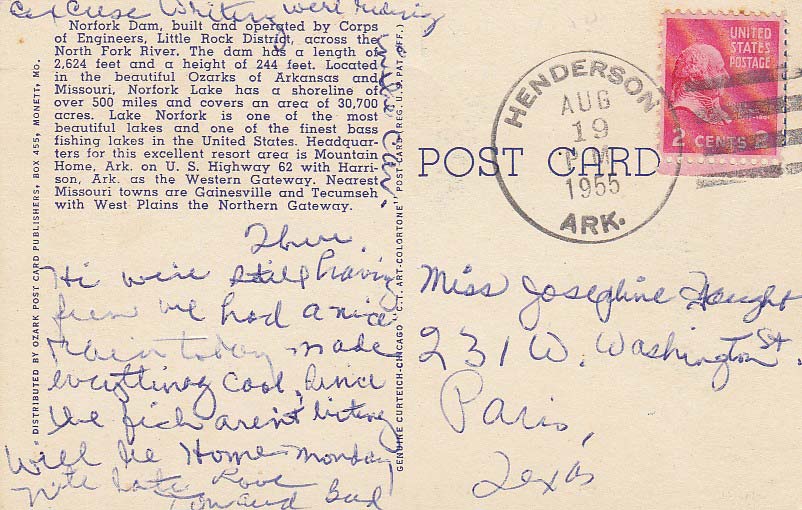 Excuse Writing we're riding
in the Car.
Norfork Dam, built and operated by Corps
of Engineers, Little Rock District, across the
North Fork River. The dam has a length of
2,624 feet and a height of 244 feet. Located
in the beautiful Ozarks of Arkansas and
Missouri, Norfork Lake has a shoreline of
over 500 miles and covers an area of 30,700
acres. Lake Norfork is one of the most
beautiful lakes and one of the finest bass
fishing lakes in the United States. Headquar-
ters for this excellent resort area is Mountain
Home, Ark. on U. S. Highway 62 with Harri-
son, Ark. as the Western Gateway. Nearest
Missouri towns are Gainesville and Tecumseh
with West Plains the Northern Gateway.
DISTRIBUTED BY OZARK POST CARD PUBLISHERS, BOX 455, MONETT, MO.
GENUINE CURTEICH-CHICAGO "C.T. ART-COLORTONE" POST CARD (REG. U.S. PAT. OFF.)
Thur.
Hi we're still having
fun we had a nice
rain today made
everything cool, since
the fish aren't biting
will be Home Monday
nite late Love
and Bud
POST CARD
HENDERSON
AUG
19
PM
1955
ARK.
UNITED
STATES
POSTAGE
2 CENTS 2
Miss Josephine
231 W. Washington St.
Paris,
Texas